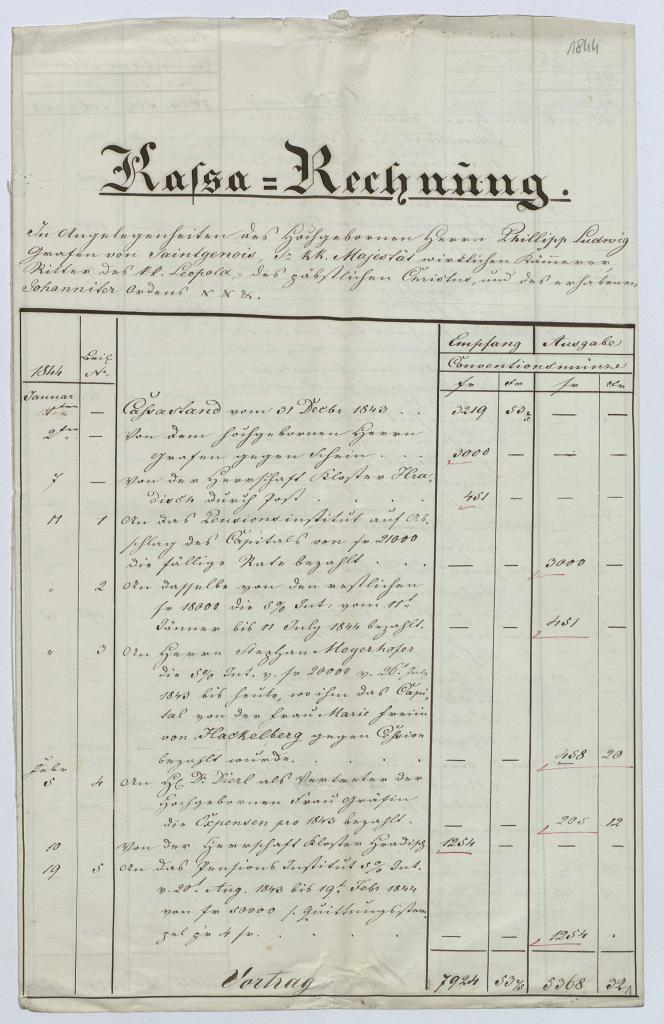 1844
Kassa=Rechnung.
In Angelegenheiten des Hochgebornen Herrn Phillipp Ludwig
Grafen von Saintgenois, Sr kk. Majestät wirklichen Kämmerer,
Ritter des kk. Leopold= des päbstlichen Christus, und des erhabenen
Johanniter Ordens
Empfang Ausgabe
Conventionsmünze
1844 Beil No fr Fr fr Fr
Januar
Cassastand vom 31 Decbr 1843 . . 3219 53 — —
2ten — Von dem Hochgebornen Herrn
Grafen gegen Schein . . . 3000 — — —
7 — Von der Herrschaft Kloster Hra-
disch durch Post . . . . 451 — — —
11 1 An das Pensionsinstitut auf Ab-
schlag des Capitals von fr 21000
die fällige Rate bezahlt . . . — — 3000 —
" 2 An dasselbe von den restlichen
fr 18000 die 5% Int: vom 11t
Jänner bis 11 July 1844 bezahlt. — — 451 —
" 3 An Herrn Stephan Meyerhofer
die 5% Int. v. fr 20000 v. 26t July
1843 bis heute, wo ihm das Capi-
tal von der Frau Marie Freiin
von Hackelberg gegen Cession
bezahlt wurde. . . . . — — 458 20
Febr
5 4 An H. Dr Dierl als Vertreter der
Hochgebornen Frau Gräfin
die Expensen pro 1843 bezahlt. — — 205 12
10 Von der Herrschaft Kloster Hradisch 1254 — — —
19 5 An das Pensions Institut 5% Int.
v. 20t Aug. 1843 bis 19t Febr 1844
von fr 50000 s. Quittungsstem-
pel pr 4 fr. . . . . — — 1254 .
Vortrag 7924 53 5368 32